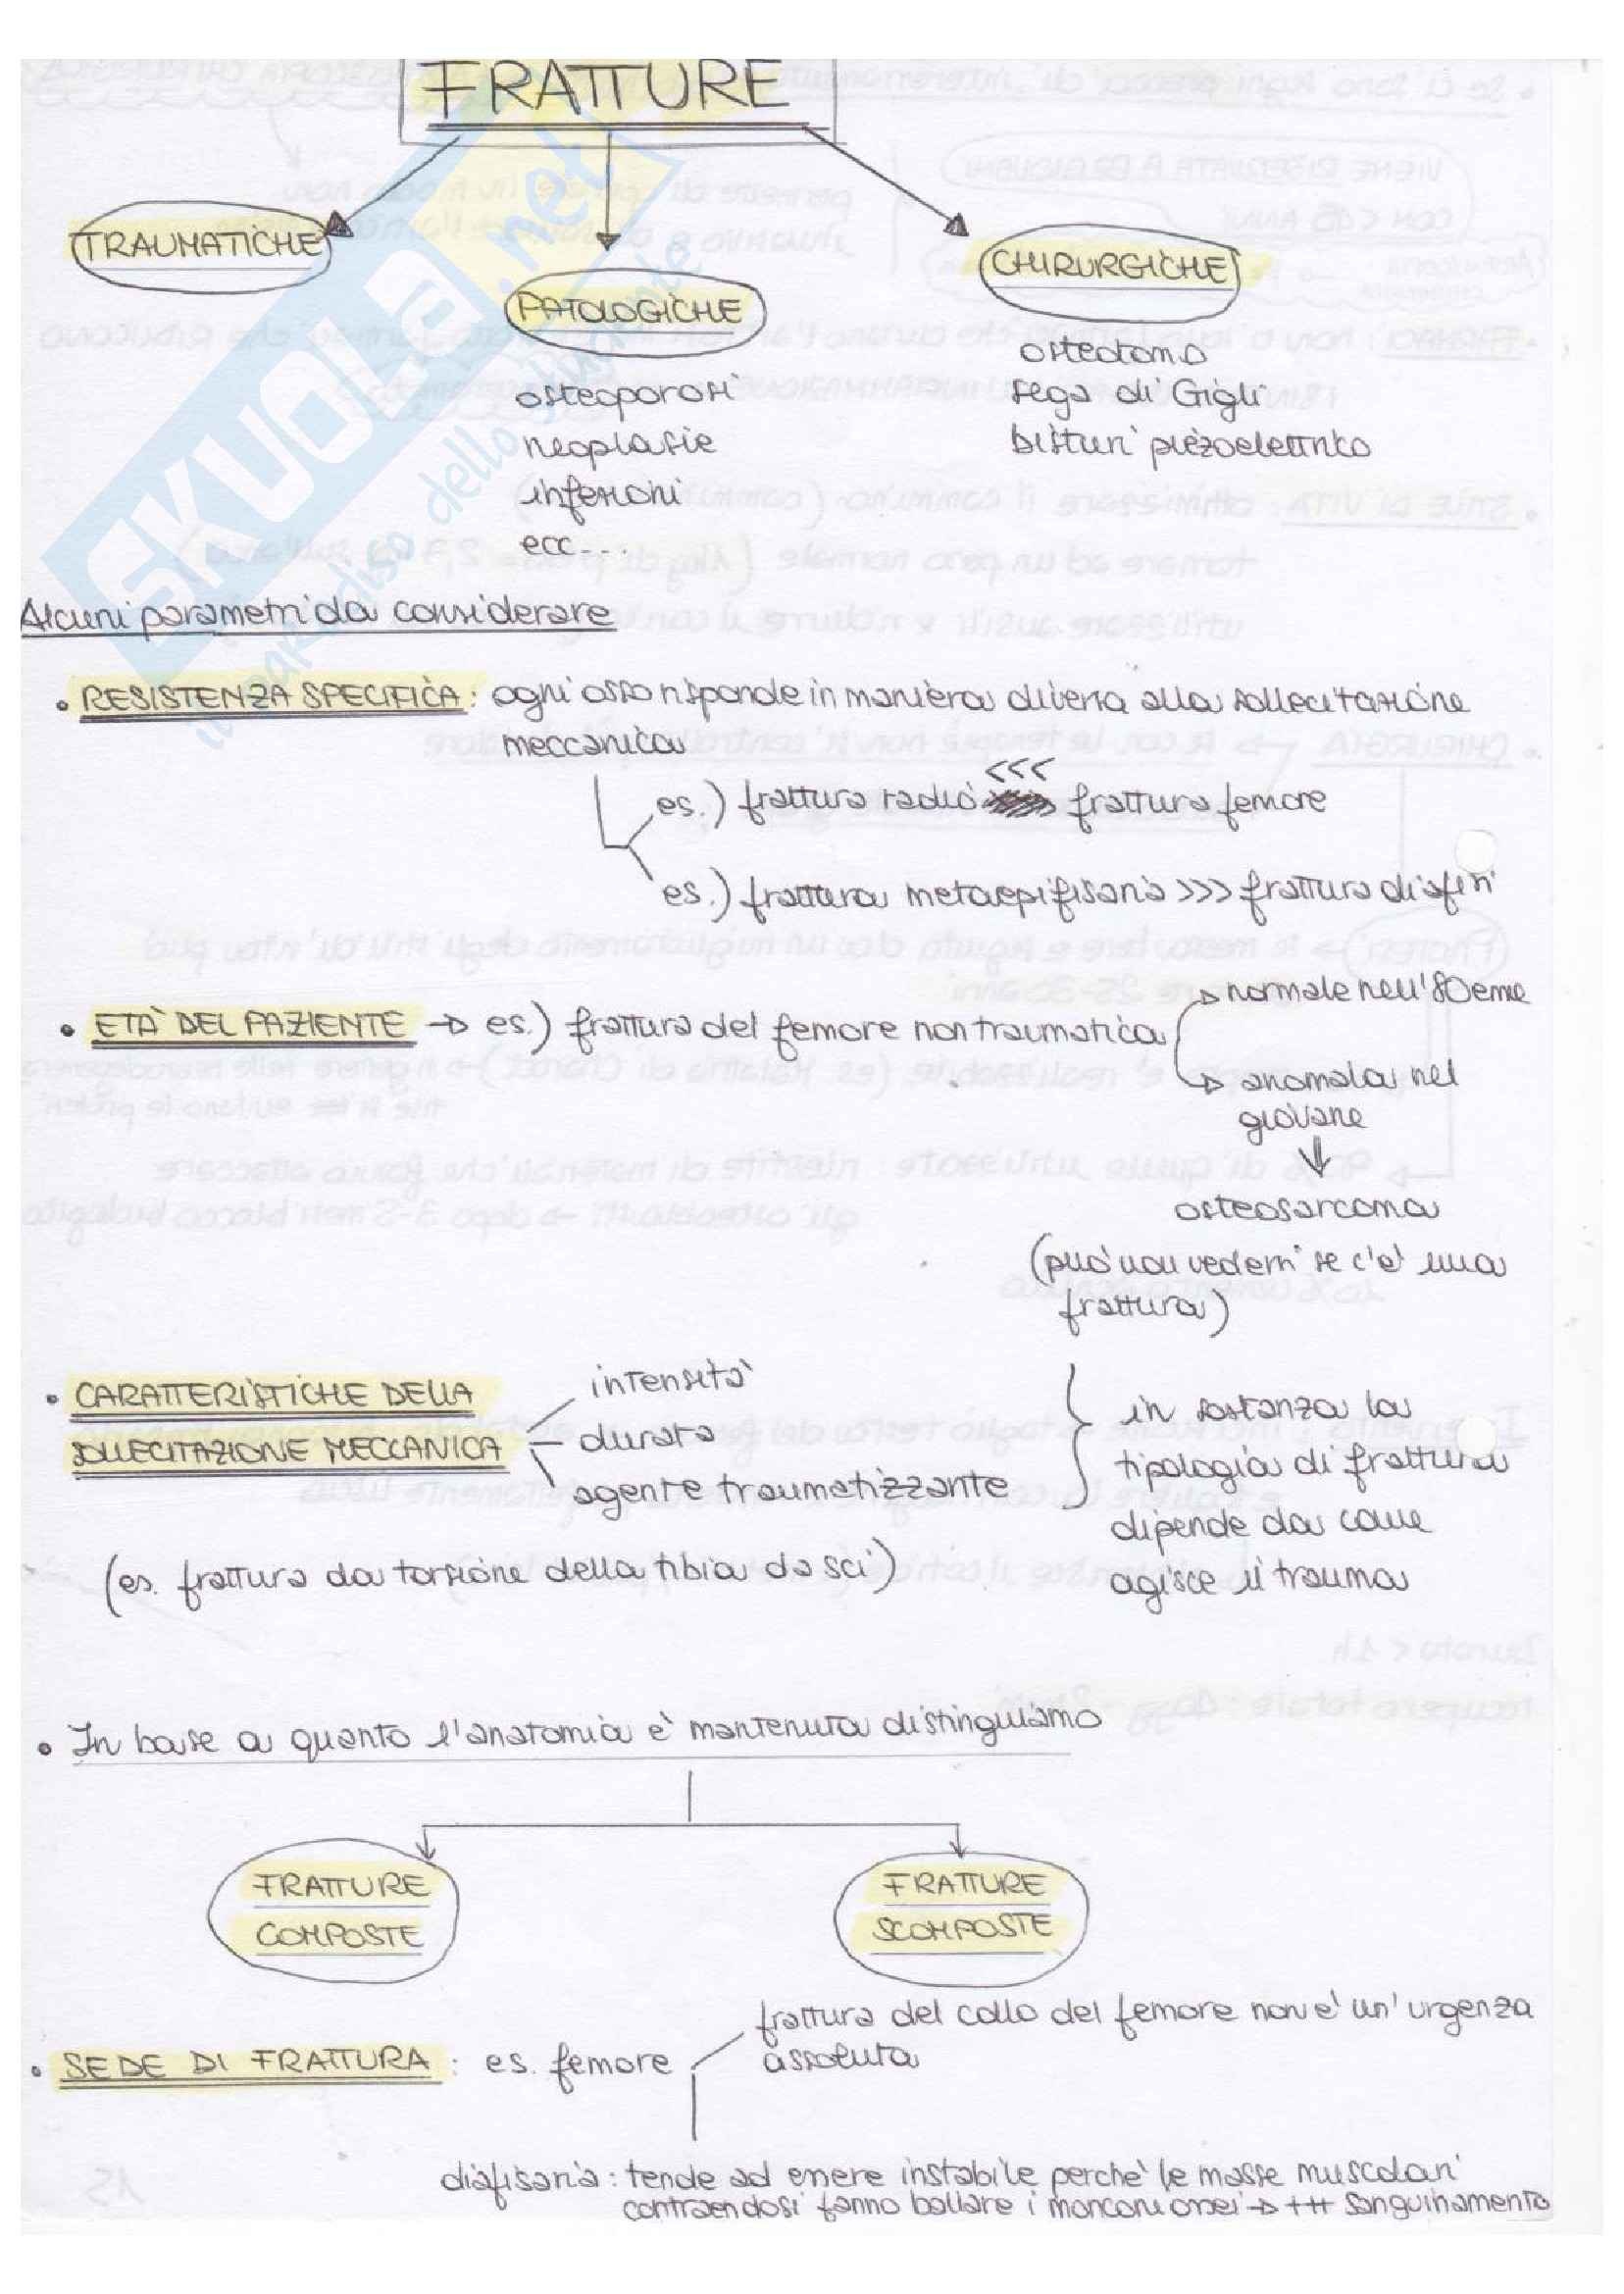 FRATTURE
TRAUMATICHE
PATOLOGICHE
CHIRURGICHE
osteoporosi
neoplasie
infezioni
ecc...
osteotomo
sega di Gigli
bisturi piezoelettrico
SKUOLA.net
il paradiso dello studente
Alcuni parametri da considerare
• RESISTENZA SPECIFICA: ogni osso risponde in maniera diversa alla sollecitazione
meccanica
es.) frattura radio <<< frattura femore
es.) frattura metaepifisaria >>> frattura diafisi
• ETÀ DEL PAZIENTE → es.) frattura del femore non traumatica
→ normale nell'80eme
→ anomala nel
giovane
⇓
osteosarcoma
(può non vedersi se c'è una
frattura)
• CARATTERISTICHE DELLA
SOLLECITAZIONE MECCANICA
intensità
durata
agente traumatizzante
in sostanza la
tipologia di frattura
dipende da come
agisce il trauma
(es. frattura da torsione della tibia da sci)
• In base a quanto l'anatomia è mantenuta distinguiamo
FRATTURE
COMPOSTE
FRATTURE
SCOMPOSTE
• SEDE DI FRATTURA: es. femore
frattura del collo del femore non è un'urgenza
assoluta
diafisaria: tende ad essere instabile perchè le masse muscolari
contraendosi fanno ballare i monconi ossei → +++ sanguinamento